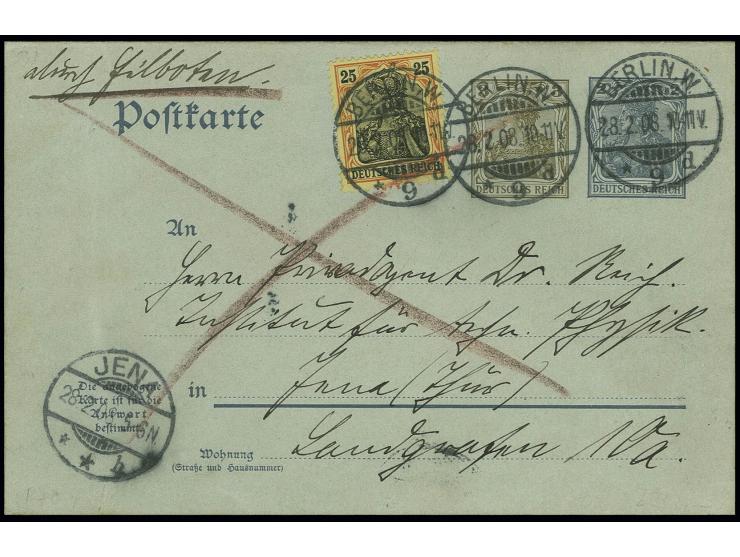 durch Eilboten.
25 25
DEUTSCHES REICH
BERLIN. W.
9 d
3
DEUTSCHES REICH
BERLIN. W.
28.2.08.10-11V.
* 9 d
2 2
DEUTSCHES REICH
BERLIN. W.
28.2.08.10-11V.
* 9 d
Postkarte
An
Herrn Privatdozent Dr. Reich.
Institut für techn. Physik.
in Jena (Thür)
Landgrafen
Wohnung
(Straße und Hausnummer)
JEN
28.2.
N.
* * b
Die angebogene
Karte ist für die
Antwort
bestimmt.